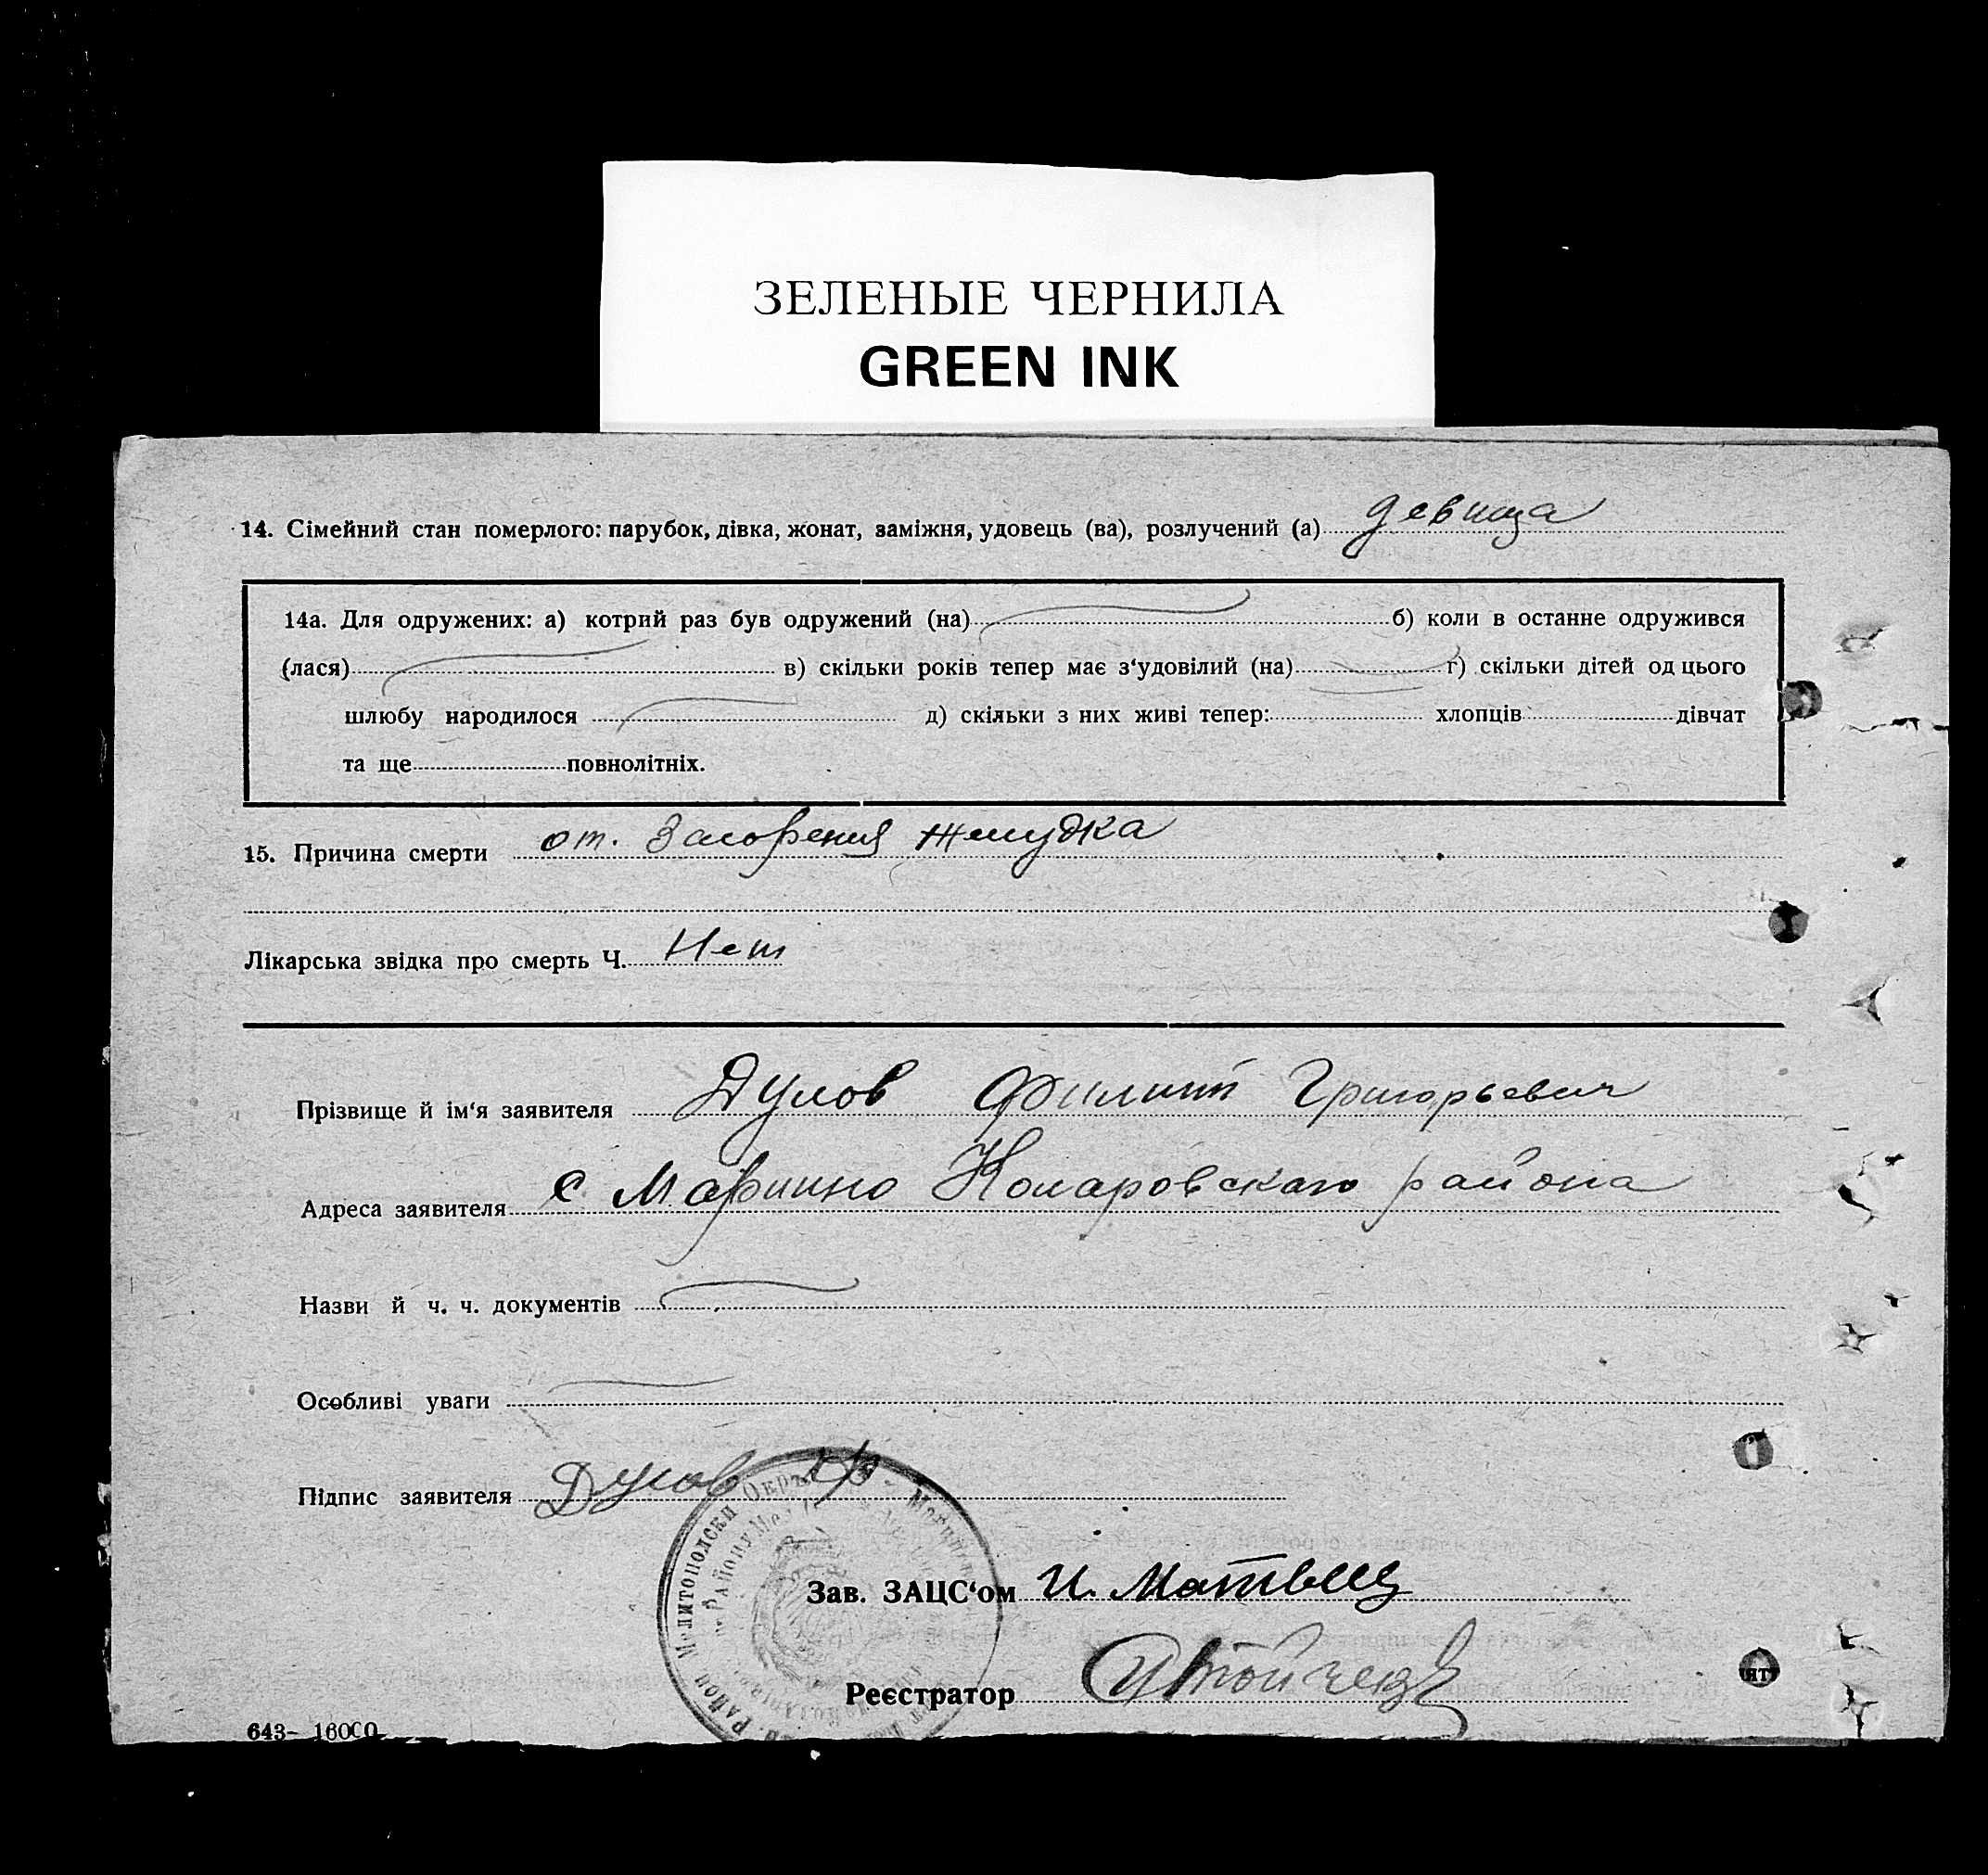 ЗЕЛЕНЫЕ ЧЕРНИЛА
GREEN INK
14. Сімейний стан померлого: парубок, дівка, жонат, заміжня, удовець (ва), розлучений (а) девица
14а. Для одружених: а) котрий раз був одружений (на) б) коли в останне одружився
(лася) в) скільки років тепер має з‘удовілий (на) г) скільки дітей од цього
шлюбу народилося д) скільки з них живі тепер: хлопців дівчат
та ще повнолітніх.
15. Причина смерти от. Засорения желудка
Лікарська звідка про смерть Ч. Нет
Прізвище й ім‘я заявителя Дулов Филипп Григорьевич
Адреса заявителя с Марьино Комаровскаго района
Назви й ч. ч. документів
Особливі уваги
Підпис заявителя Дулов
Зав. ЗАЦС‘ом И.
Реєстратор
643– 16000